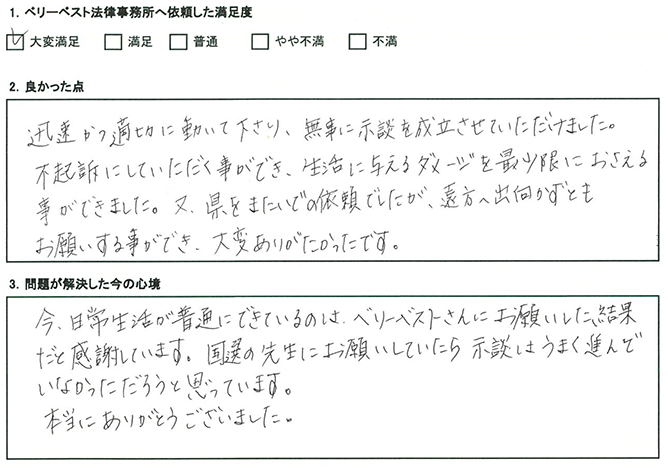 1. ベリーベスト法律事務所へ依頼した満足度
☑ 大変満足 □ 満足 □ 普通 □ やや不満 □ 不満
2. 良かった点
迅速かつ適切に動いて下さり、無事に示談を成立させていただけました。
不起訴にしていただく事ができ、生活に与えるダメージを最少限におさえる
事ができました。又、県をまたいでの依頼でしたが、遠方へ出向かずとも
お願いする事ができ、大変ありがたかったです。
3. 問題が解決した今の心境
今、日常生活が普通にできているのは、ベリーベストさんにお願いした、結果
だと感謝しています。国選の先生にお願いしていたら示談はうまく進んで
いなかっただろうと思っています。
本当にありがとうございました。